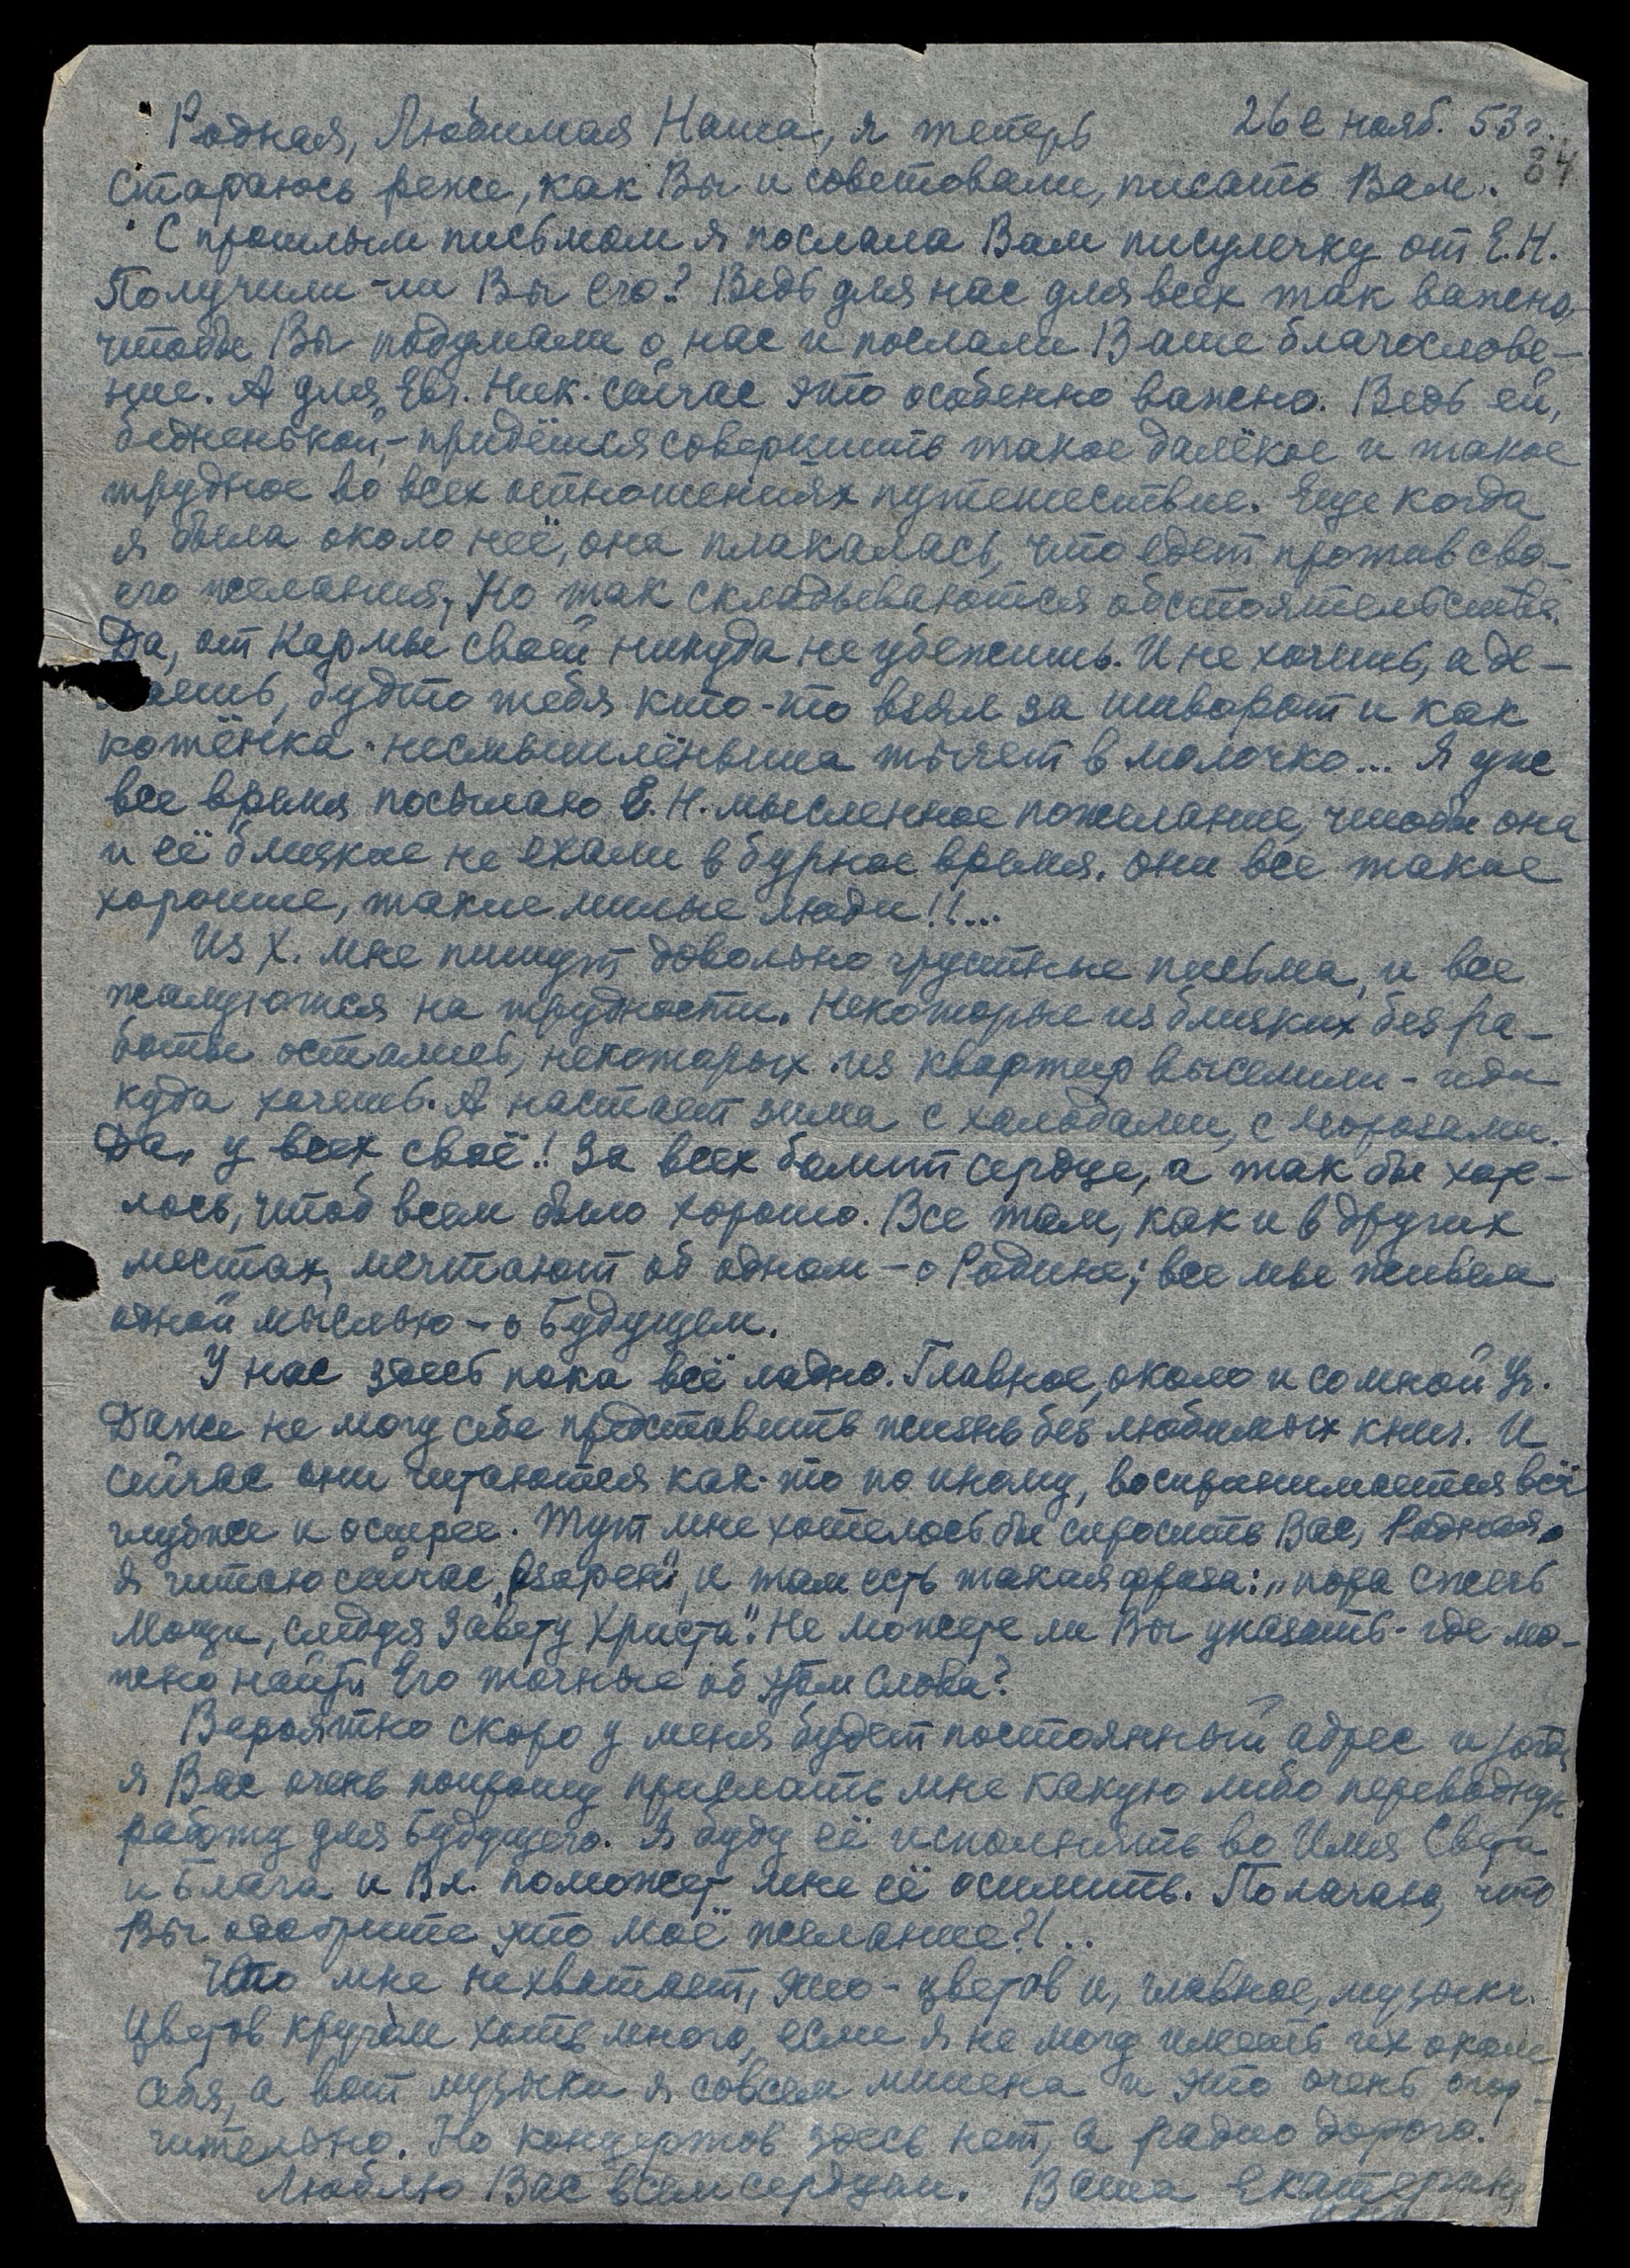 Родная, Любимая Наша, я теперь 26е нояб. 53 г.
84
стараюсь реже, как Вы и советовали, писать Вам.
С прошлым письмом я послала Вам писулечку от Е.Н.
Получили-ли Вы его? Ведь для нас для всех так важно,
чтобы Вы подумали о нас и послали Ваше благослове-
ние. А для Евг. Ник. сейчас это особенно важно. Ведь ей,
бедненькой, придётся совершить такое далёкое и такое
трудное во всех отношениях путешествие. Еще когда
я была около неё, она плакалась, что едет против сво-
его желания, Но так складываются обстоятельства.
Да, от Кармы своей никуда не убежишь. И не хочешь, а де-
лаешь, будто тебя кто-то взял за шиворот и как
котёнка-несмышлёныша тычет в молочко... Я уже
все время посылаю Е.Н. мысленное пожелание, чтобы она
и её близкие не ехали в бурное время. Они все такие
хорошие, такие милые люди!!...
Из Х. мне пишут довольно грустные письма, и все
жалуются на трудности. Некоторые из близких без ра-
боты остались, некоторых из квартир выселили - иди
куда хочешь. А настает зима с холодами, с морозами.
Да, у всех своё!! За всех болит сердце, а так бы хоте-
лось, чтоб всем было хорошо. Все там, как и в других
местах, мечтают об одном - о Родине; все мы живем
одной мыслью - о Будущем.
У нас здесь пока всё ладно. Главное, около и со мной Уч.
Даже не могу себе представить жизнь без любимых книг. И
сейчас они читаются как-то по иному, воспринимается всё
глубже и острее. Тут мне хотелось бы спросить Вас, Родная.
Я читаю сейчас „Озарен", и там есть такая фраза: „пора сжечь
Мощи, следуя Завету Христа". Не можете ли Вы указать - где мо-
жно найти Его точные об этом Слова?
Вероятно скоро у меня будет постоянный адрес и тогда
я Вас очень попрошу прислать мне какую либо переводную
работу для Будущего. Я буду её исполнять во Имя Света
и Блага и Вл. поможет мне её осилить. Полагаю, что
Вы одобрите это моё желание?!..
Что мне не хватает, это - цветов и, главное, музыки.
Цветов кругом хоть много, если я не могу иметь их около
себя, а вот музыки я совсем лишена и это очень огор-
чительно. Но концертов здесь нет, а радио дорого.
Люблю Вас всем сердцем. Ваша Екатерина